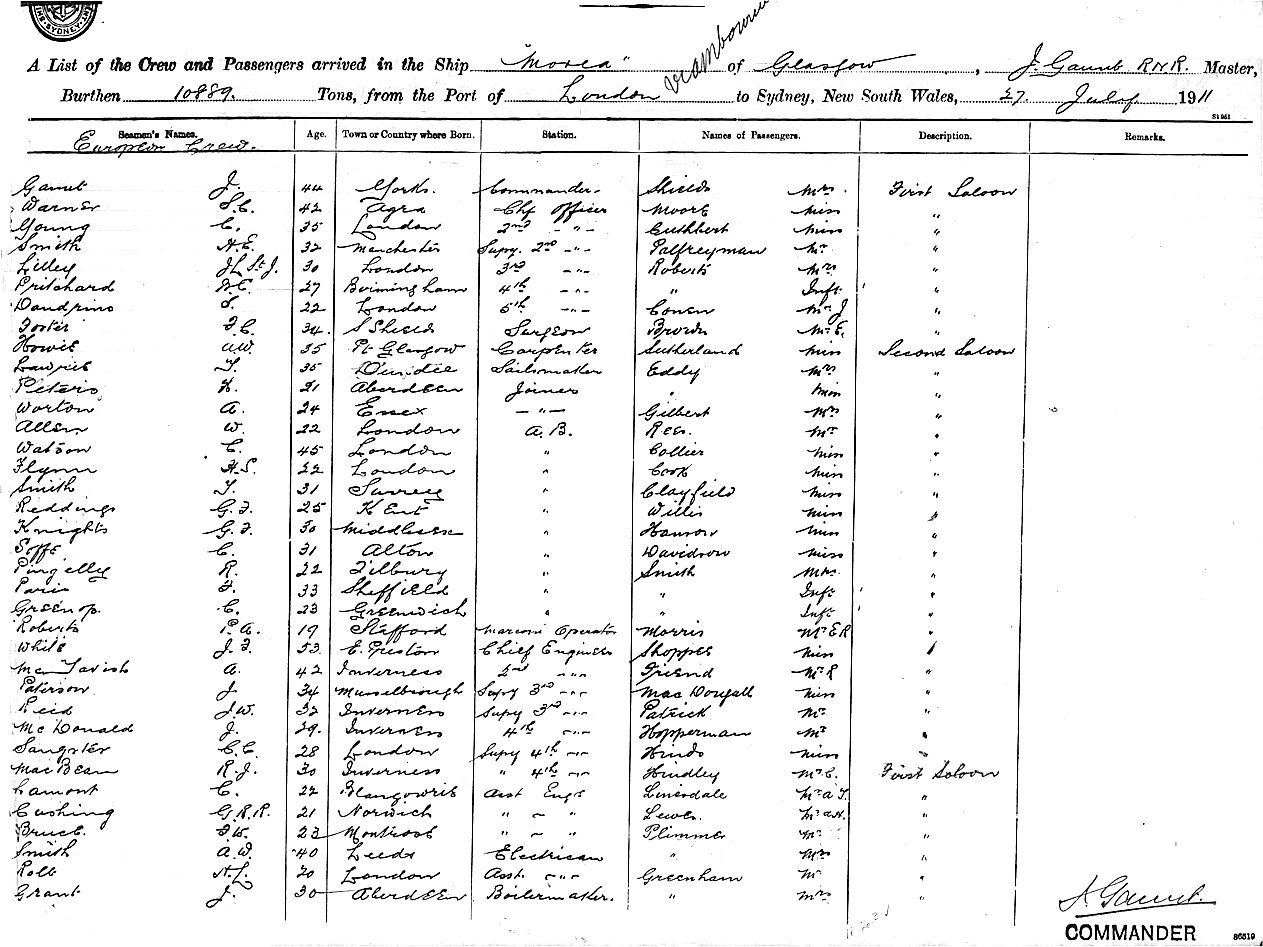 SYDNEY
A List of the Crew and Passengers arrived in the Ship "Morea" of Glasgow, J. Gaunt R N R. Master,
Burthen 10889. Tons, from the Port of London to Sydney, New South Wales, 27. July 1911
S1951
Seamen's Names. Age. Town or Country where Born. Station. Names of Passengers. Description. Remarks.
European Crew.
Gaunt J. 44 Yorks. Commander. Shields Mrs. First Saloon
Warner S.C. 42 Agra Chf Officer Moore Miss "
Young C. 35 London 2nd -"- Cuthbert Miss "
Smith H.E. 32 Manchester Supy. 2nd -"- Palfreyman Mr. "
Lilley J L St J. 30 London 3rd -"- Roberts Mrs "
Pritchard 27 Birmingham 4th -"- " Inft. "
Dandrino 22 London 5th -"- Cowen Mr J "
Foster F.C. 34. S Shields Surgeon Brown Mr E. "
Howie A.W. 35 Pt Glasgow Carpenter Sutherland Miss Second Saloon
Lawrie T. 35 Dundee Sailsmaker Eddy Mrs "
Peters 21 Aberdeen Joiner " Miss "
Worton A. 24 Essex -"- Gilbert Mrs "
Allen W. 22 London A.B. Rees. Mr "
Watson C. 45 London " Collier Miss "
Flynn H.S. 22 London " Cook Miss "
Smith T. 31 Surrey " Clayfield Miss "
Reddings G.F. 25 Kent " Willis Miss "
Knights G.F. 30 Middlesex " Hanson Miss "
Soffe C. 31 Alton " Davidson Miss "
Pingelly R. 22 Tilbury " Smith Mrs. "
F. 33 Sheffield " " Inft "
Greenop. C. 23 Greenwich " " Inft "
Roberts P.A. 19 Stafford Marconi Operator Morris Mr E R "
White J.F. 53 E. Preston Chief Engineer Shoppee Miss "
Mc Tavish A. 42 Inverness 2nd -"- Friend Mr R "
Paterson J. 34 Musselbrough Supy 3rd -"- Mac Dougall Miss "
Reid J.W. 32 Inverness Supy 3rd -"- Patrick Mr. "
Mc Donald J. 29. Inverness 4th -"- Hopperman Mr "
Sangster C.C. 28 London Supy 4th -"- Hinds Miss "
MacBean R.J. 30 Inverness " 4th -"- Hindley Mr C. First Saloon
Lamont C. 22 Blairgowrie Asst Engr Linesdale Mr A.T. "
Cushing G.R.R. 21 Norwich " - " Lewes. Mr A.H. "
Bruce. F.W. 23 Montrose " - " Plimmer Mr "
Smith A.W. 40 Leeds Electrician " Mrs "
Robb H.L. 20 London Asst. -"- Greenham Mr "
Grant J. 30 Aberdeen Boilermaker. " Mrs "
J. Gaunt.
COMMANDER
S6519